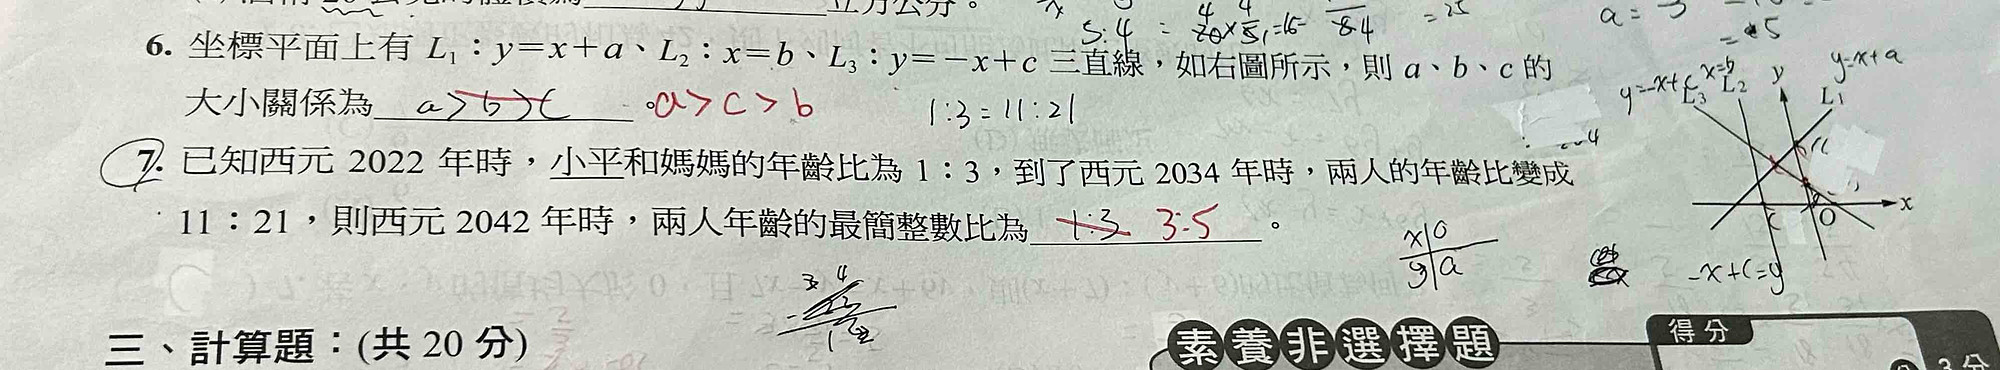 立方公分。
5:4
=25
6. 坐標平面上有 L₁：y=x+a、L₂：x=b、L₃：y=-x+c 三直線，如右圖所示，則 a、b、c 的
大小關係為 a>b>c 。a>c>b
1:3=11:21
y=-x+c
x=b
y
y=x+a
L₃ L₂ L₁
O x
7. 已知西元 2022 年時，小平和媽媽的年齡比為 1：3，到了西元 2034 年時，兩人的年齡比變成
11：21，則西元 2042 年時，兩人年齡的最簡整數比為 1:3 3:5 。
x|0
y|a
-x+c=y
三、計算題：(共 20 分)
素養非選擇題
得分
3分